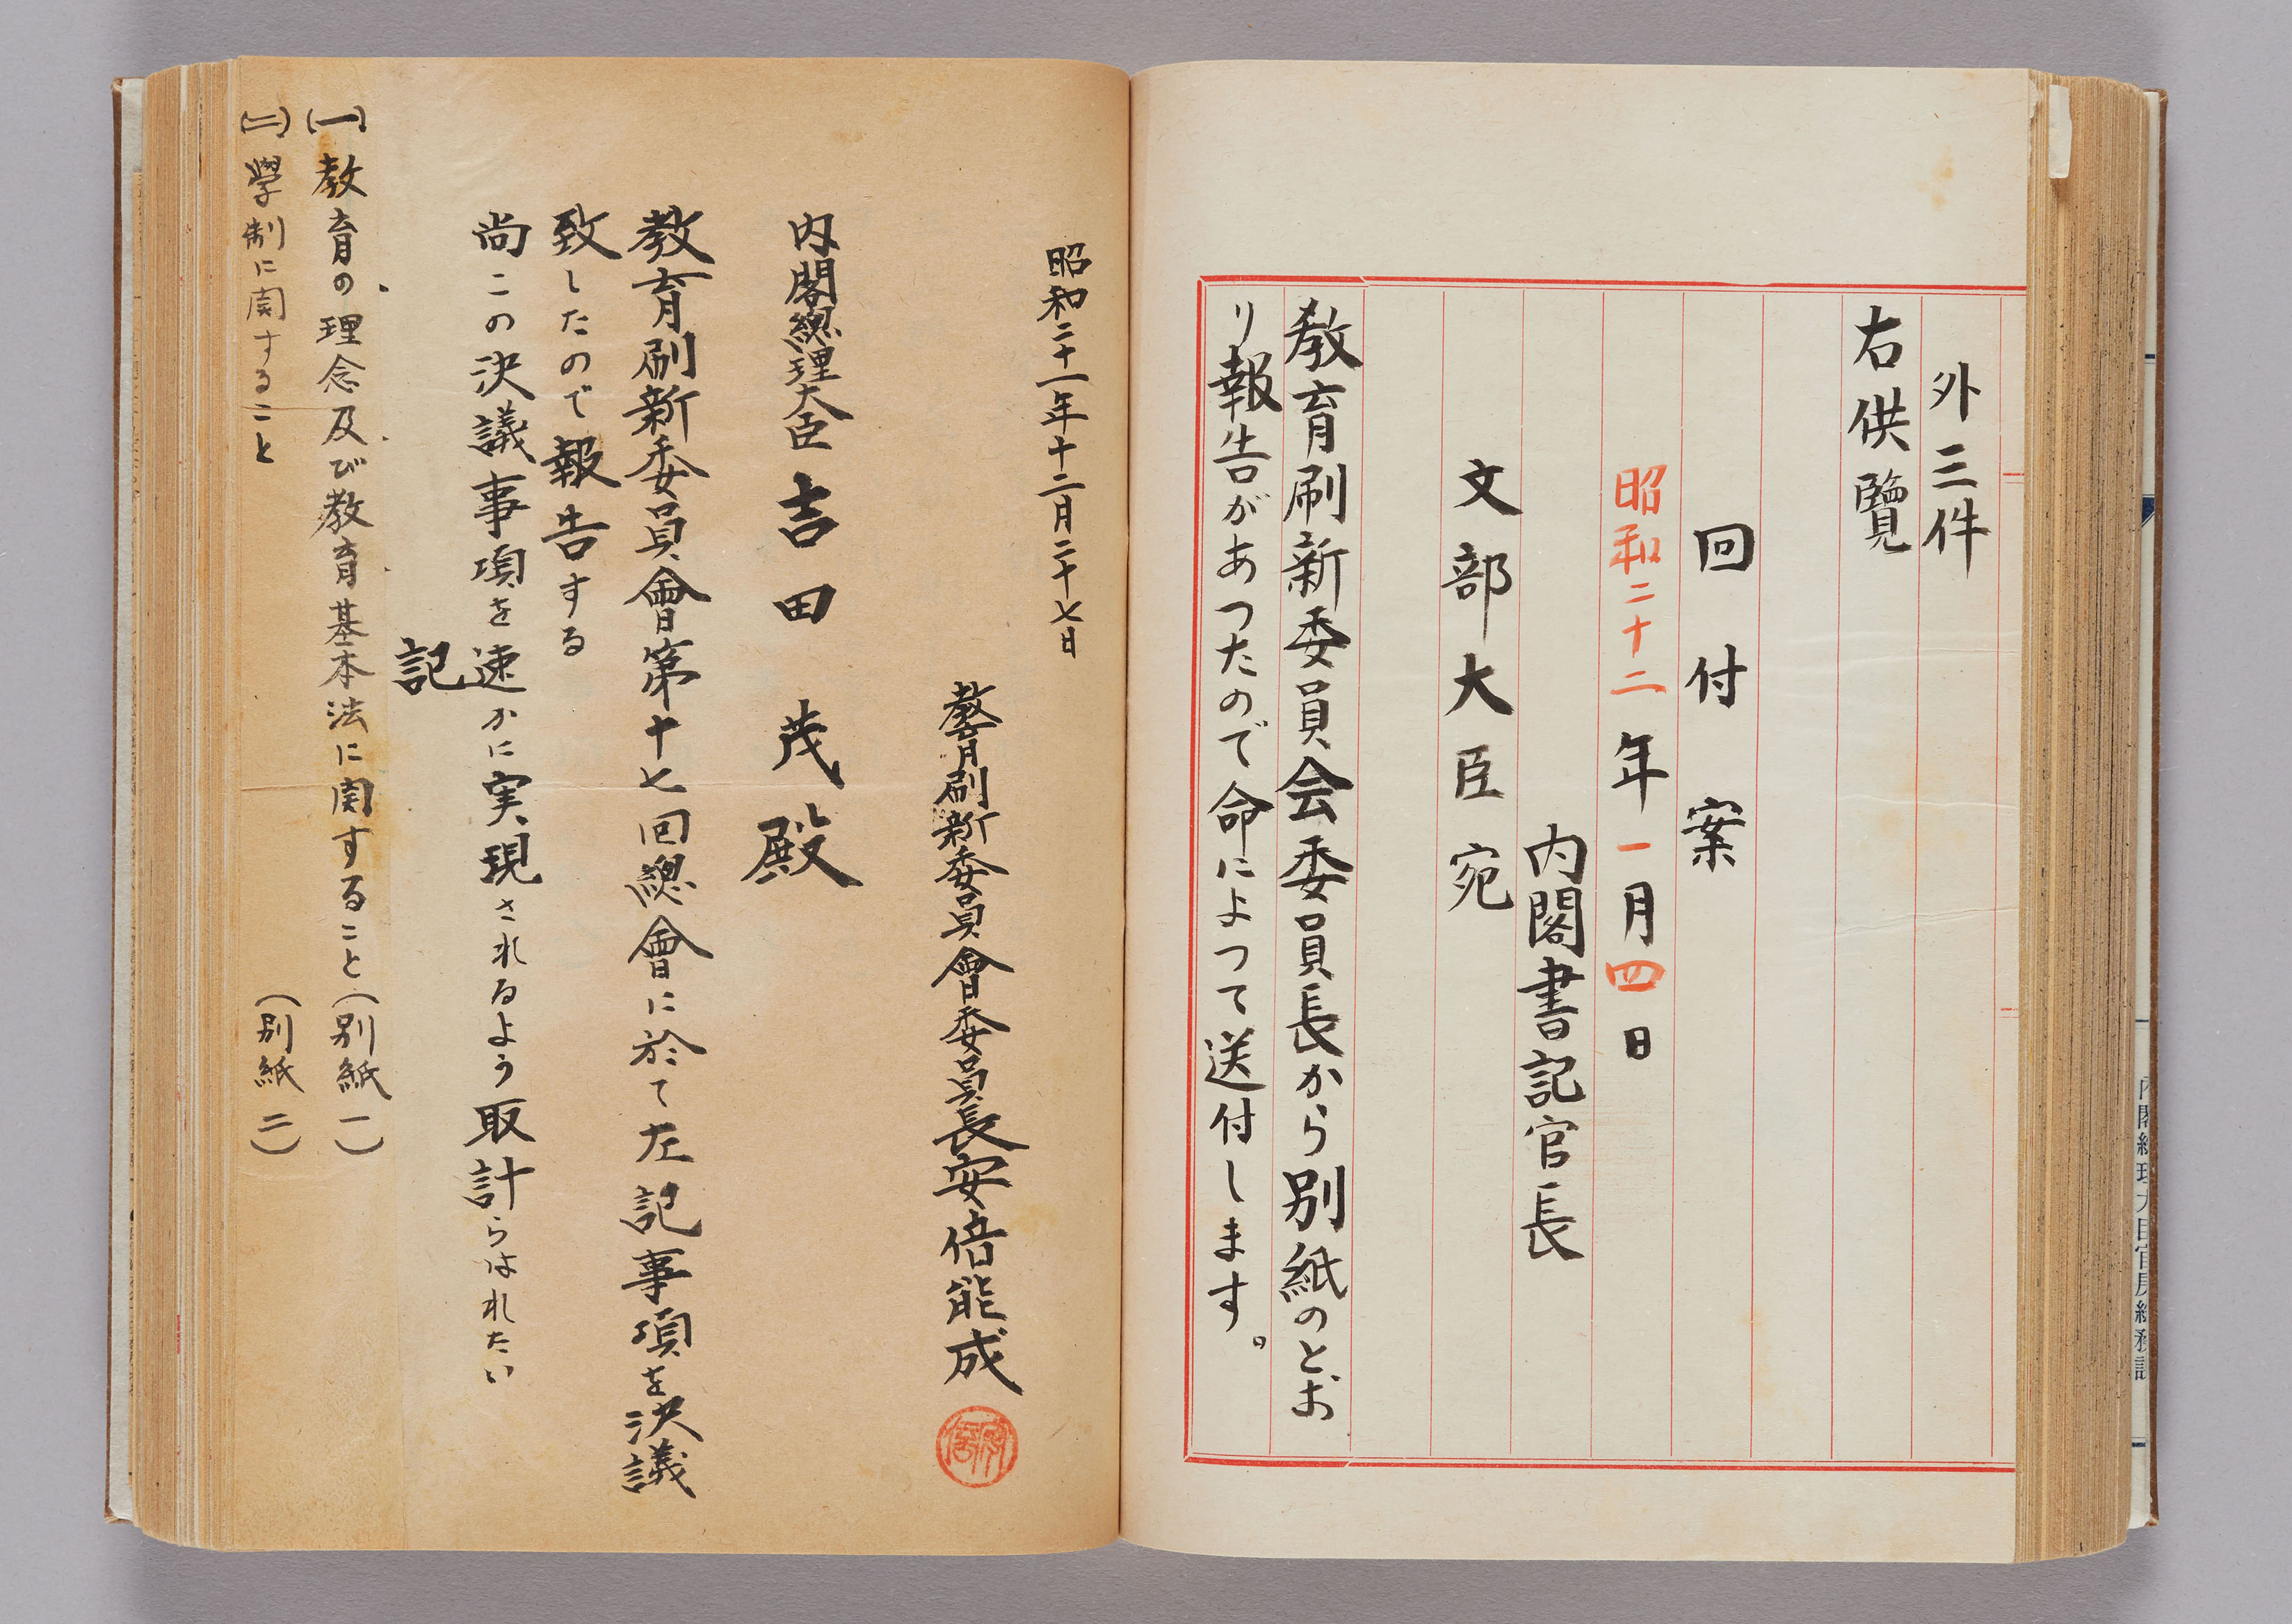 外三件
右供覽
回付案
昭和二十二年一月四日
内閣書記官長
文部大臣宛
教育刷新委員会委員長から別紙のとお
り報告があつたので命によつて送付します。
昭和二十一年十二月二十七日
教育刷新委員會委員長安倍能成
内閣總理大臣吉田茂殿
教育刷新委員會第十七回總會に於て左記事項を決議
致したので報告する
尚この決議事項を速かに実現されるよう取計らはれたい
記
(一)教育の理念及び教育基本法に関すること(別紙一)
(二)學制に関すること(別紙二)